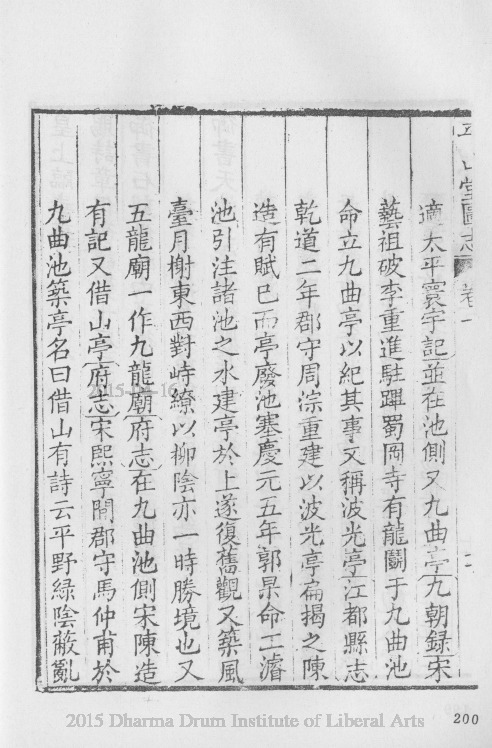 平山堂圖志 卷一
適太平寰宇記並在池側又九曲亭九朝錄宋
藝祖破李重進駐蹕蜀岡寺有龍鬭于九曲池
命立九曲亭以紀其事又稱波光亭江都縣志
乾道二年郡守周淙重建以波光亭扁揭之陳
造有賦已而亭廢池塞慶元五年郭杲命工濬
池引注諸池之水建亭於上遂復舊觀又築風
臺月榭東西對峙繚以柳陰亦一時勝境也又
五龍廟一作九龍廟府志在九曲池側宋陳造
有記又借山亭府志宋熙寧間郡守馬仲甫於
九曲池築亭名曰借山有詩云平野綠陰蔽亂
2015-04-16
2015 Dharma Drum Institute of Liberal Arts
200